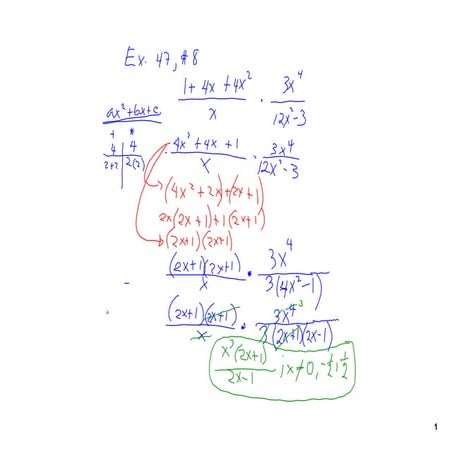 Ex. 47, #8
(1 + 4x + 4x²)/x · 3x⁴/(12x²-3)
ax²+bx+c
+ *
4 4
2+2 2(2)
(4x²+4x+1)/x · 3x⁴/(12x²-3)
(4x²+2x)+(2x+1)
2x(2x+1)+1(2x+1)
(2x+1)(2x+1)
(2x+1)(2x+1)/x · 3x⁴/(3(4x²-1))
(2x+1)(2x+1)/x · 3x⁴ ³/(3(2x+1)(2x-1))
x³(2x+1)/(2x-1) ; x≠0, -½, ½
1